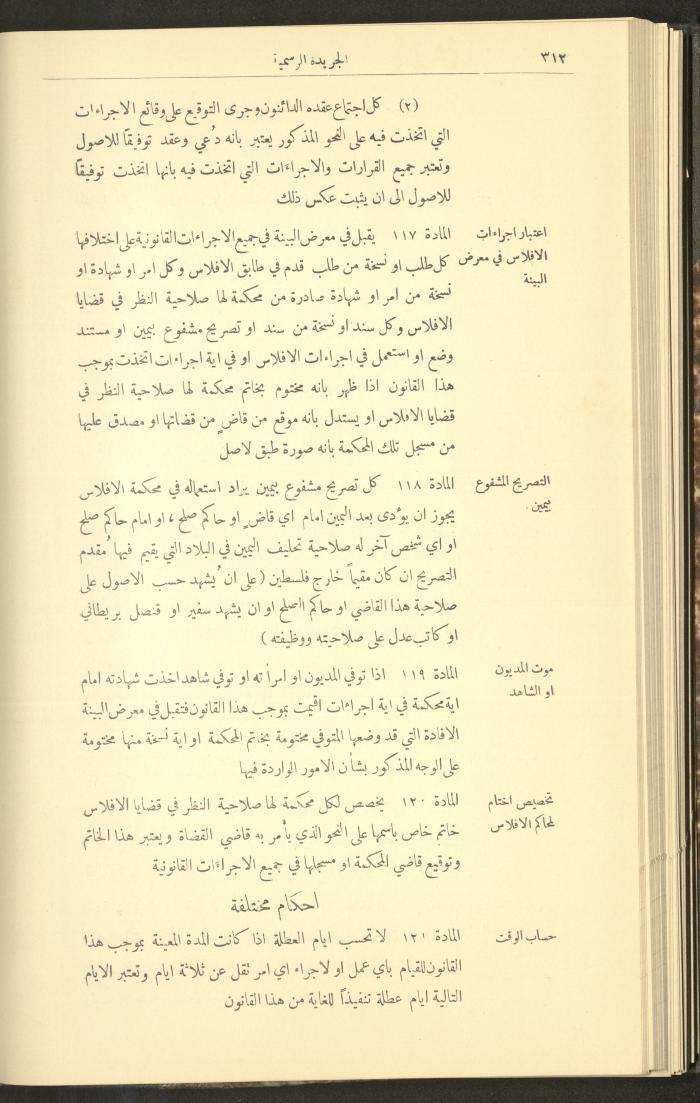 ٣١٢
الجريدة الرسمية
(٢) كل اجتماع عقده الدائنون وجرى التوقيع على وقائع الاجراءات
التي اتخذت فيه على النحو المذكور يعتبر بانه دُعي وعقد توفيقاً للاصول
وتعتبر جميع القرارات والاجراءات التي اتخذت فيه بانها اتخذت توفيقاً
للاصول الى ان يثبت عكس ذلك
اعتبار اجراءات
الافلاس في معرض
البينة
المادة ١١٧ يقبل في معرض البينة في جميع الاجراءات القانونية على اختلافها
كل طلب او نسخة من طلب قدم في طابق الافلاس وكل امر او شهادة او
نسخة من امر او شهادة صادرة من محكمة لها صلاحية النظر في قضايا
الافلاس وكل سند او نسخة من سند او تصريح مشفوع بيمين او مستند
وضع او استعمل في اجراءات الافلاس او في اية اجراءات اتخذت بموجب
هذا القانون اذا ظهر بانه مختوم بخاتم محكمة لها صلاحية النظر في
قضايا الافلاس او يستدل بانه موقع من قاضٍ من قضاتها او مصدق عليها
من مسجل تلك المحكمة بانه صورة طبق لاصل
التصريح المشفوع
بيمين
المادة ١١٨ كل تصريح مشفوع بيمين يراد استعماله في محكمة الافلاس
يجوز ان يؤدى بعد اليمين امام اي قاضٍ او حاكم صلح، او امام حاكم صلح
او اي شخص آخر له صلاحية تحليف اليمين في البلاد التي يقيم فيها مُقدم
التصريح ان كان مقيماً خارج فلسطين (على ان يُشهد حسب الاصول على
صلاحية هذا القاضي او حاكم الصلح او ان يشهد سفير او قنصل بريطاني
او كاتب عدل على صلاحيته ووظيفته)
موت المديون
او الشاهد
المادة ١١٩ اذا توفي المديون او امرأته او توفي شاهد اخذت شهادته امام
اية محكمة في اية اجراءات اقيمت بموجب هذا القانون فتقبل في معرض البينة
الافادة التي قد وضعها المتوفي مختومة بخاتم المحكمة او اية نسخة منها مختومة
على الوجه المذكور بشأن الامور الواردة فيها
تخصيص اختام
لمحاكم الافلاس
المادة ١٢٠ يخصص لكل محكمة لها صلاحية النظر في قضايا الافلاس
خاتم خاص باسمها على النحو الذي يأمر به قاضي القضاة ويعتبر هذا الخاتم
وتوقيع قاضي المحكمة او مسجلها في جميع الاجراءات القانونية
احكام مختلفة
حساب الوقت
المادة ١٢١ لا تحسب ايام العطلة اذا كانت المدة المعينة بموجب هذا
القانون للقيام باي عمل او لاجراء اي امر تقل عن ثلاثة ايام وتعتبر الايام
التالية ايام عطلة تنفيذاً للغاية من هذا القانون